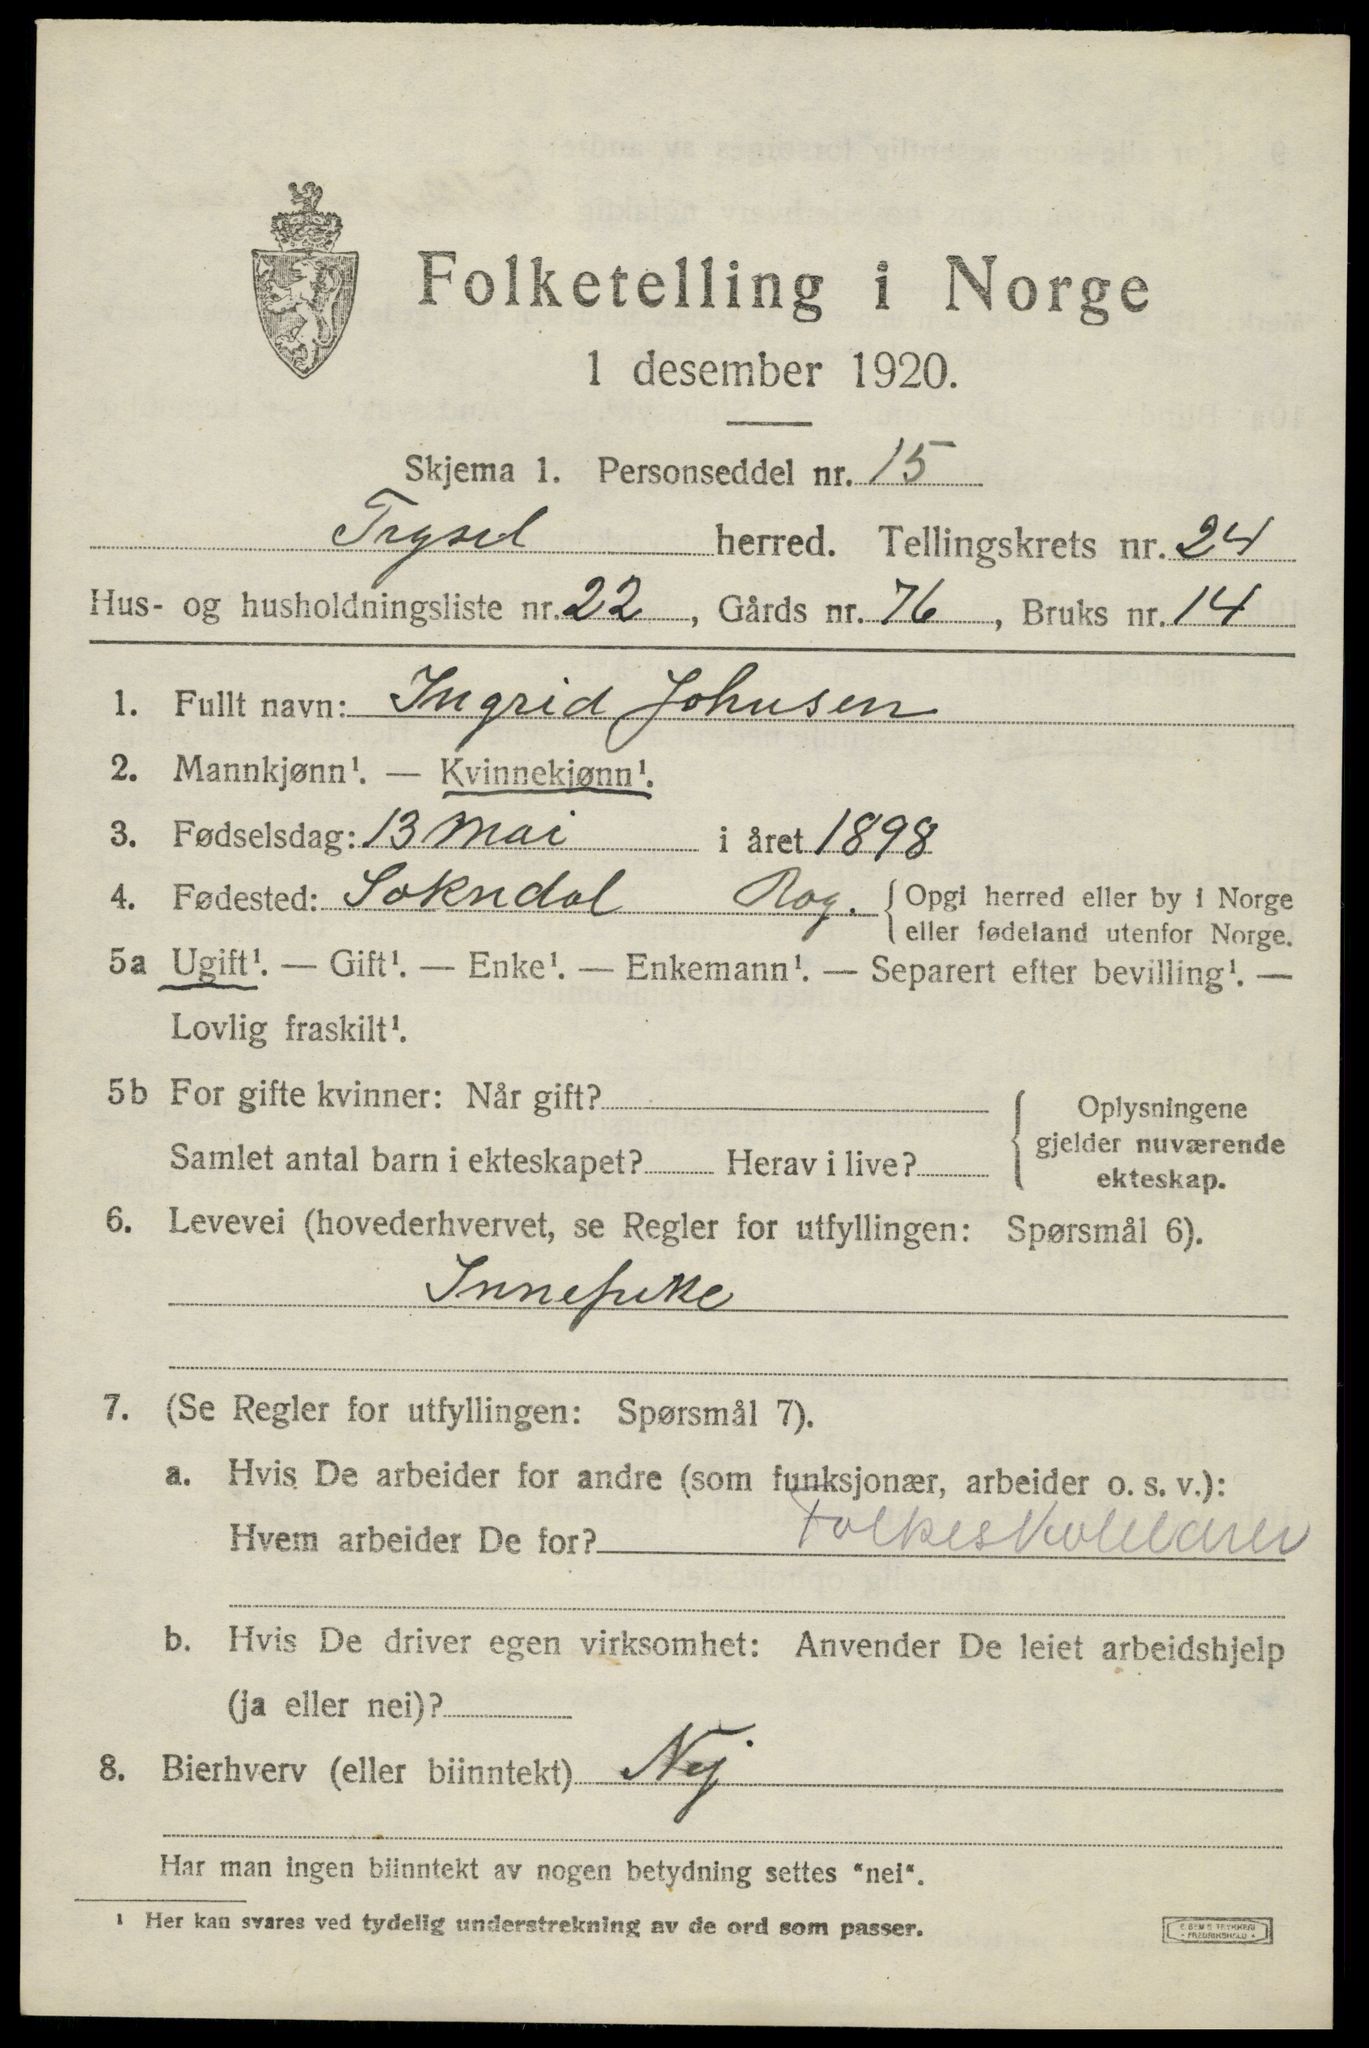 Folketelling i Norge
1 desember 1920.
Skjema 1. Personseddel nr. 15
Trysel herred. Tellingskrets nr. 24
Hus- og husholdningsliste nr. 22, Gårds nr. 76, Bruks nr. 14
1. Fullt navn: Ingrid Johnsen
2. Mannkjønn¹. — Kvinnekjønn¹.
3. Fødselsdag: 13 Mai i året 1898
4. Fødested: Sokndal Rog. { Opgi herred eller by i Norge
eller fødeland utenfor Norge.
5a Ugift¹. — Gift¹. — Enke¹. — Enkemann¹. — Separert efter bevilling¹. —
Lovlig fraskilt¹.
5b For gifte kvinner: Når gift?
Samlet antal barn i ekteskapet? Herav i live?
Oplysningene
gjelder nuværende
ekteskap.
6. Levevei (hovederhvervet, se Regler for utfyllingen: Spørsmål 6).
Innepike
7. (Se Regler for utfyllingen: Spørsmål 7).
a. Hvis De arbeider for andre (som funksjonær, arbeider o. s. v.):
Hvem arbeider De for? Folkeskolelærer
b. Hvis De driver egen virksomhet: Anvender De leiet arbeidshjelp
(ja eller nei)?
8. Bierhverv (eller biinntekt) Nej
Har man ingen biinntekt av nogen betydning settes "nei".
¹ Her kan svares ved tydelig understrekning av de ord som passer.
E. SEM'S TRYKKERI
- FREDRIKSHALD -